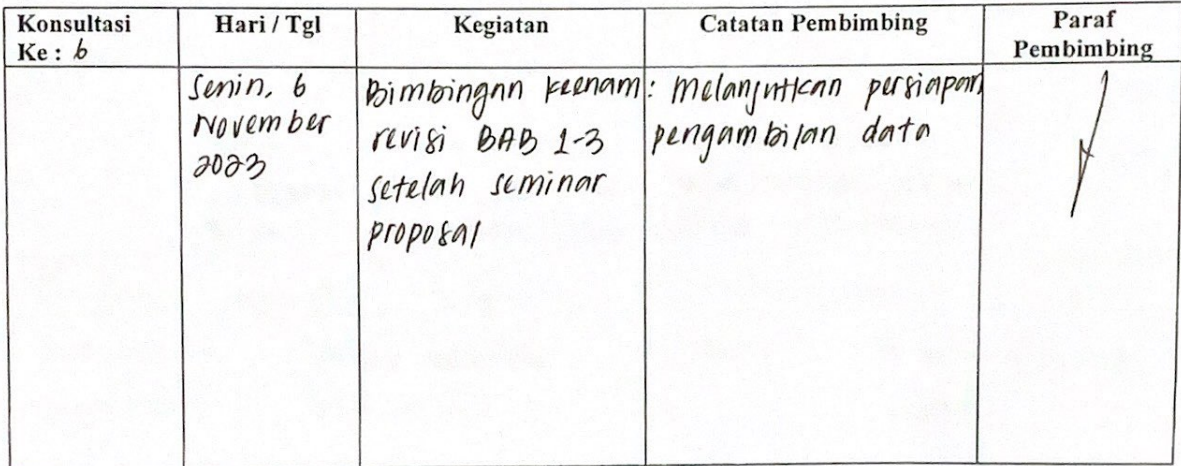 Konsultasi Ke : 6
Hari / Tgl
Kegiatan
Catatan Pembimbing
Paraf Pembimbing
Senin, 6
November
2023
Bimbingan keenam :
revisi BAB 1-3
setelah seminar
proposal
Melanjutkan persiapan
pengambilan data